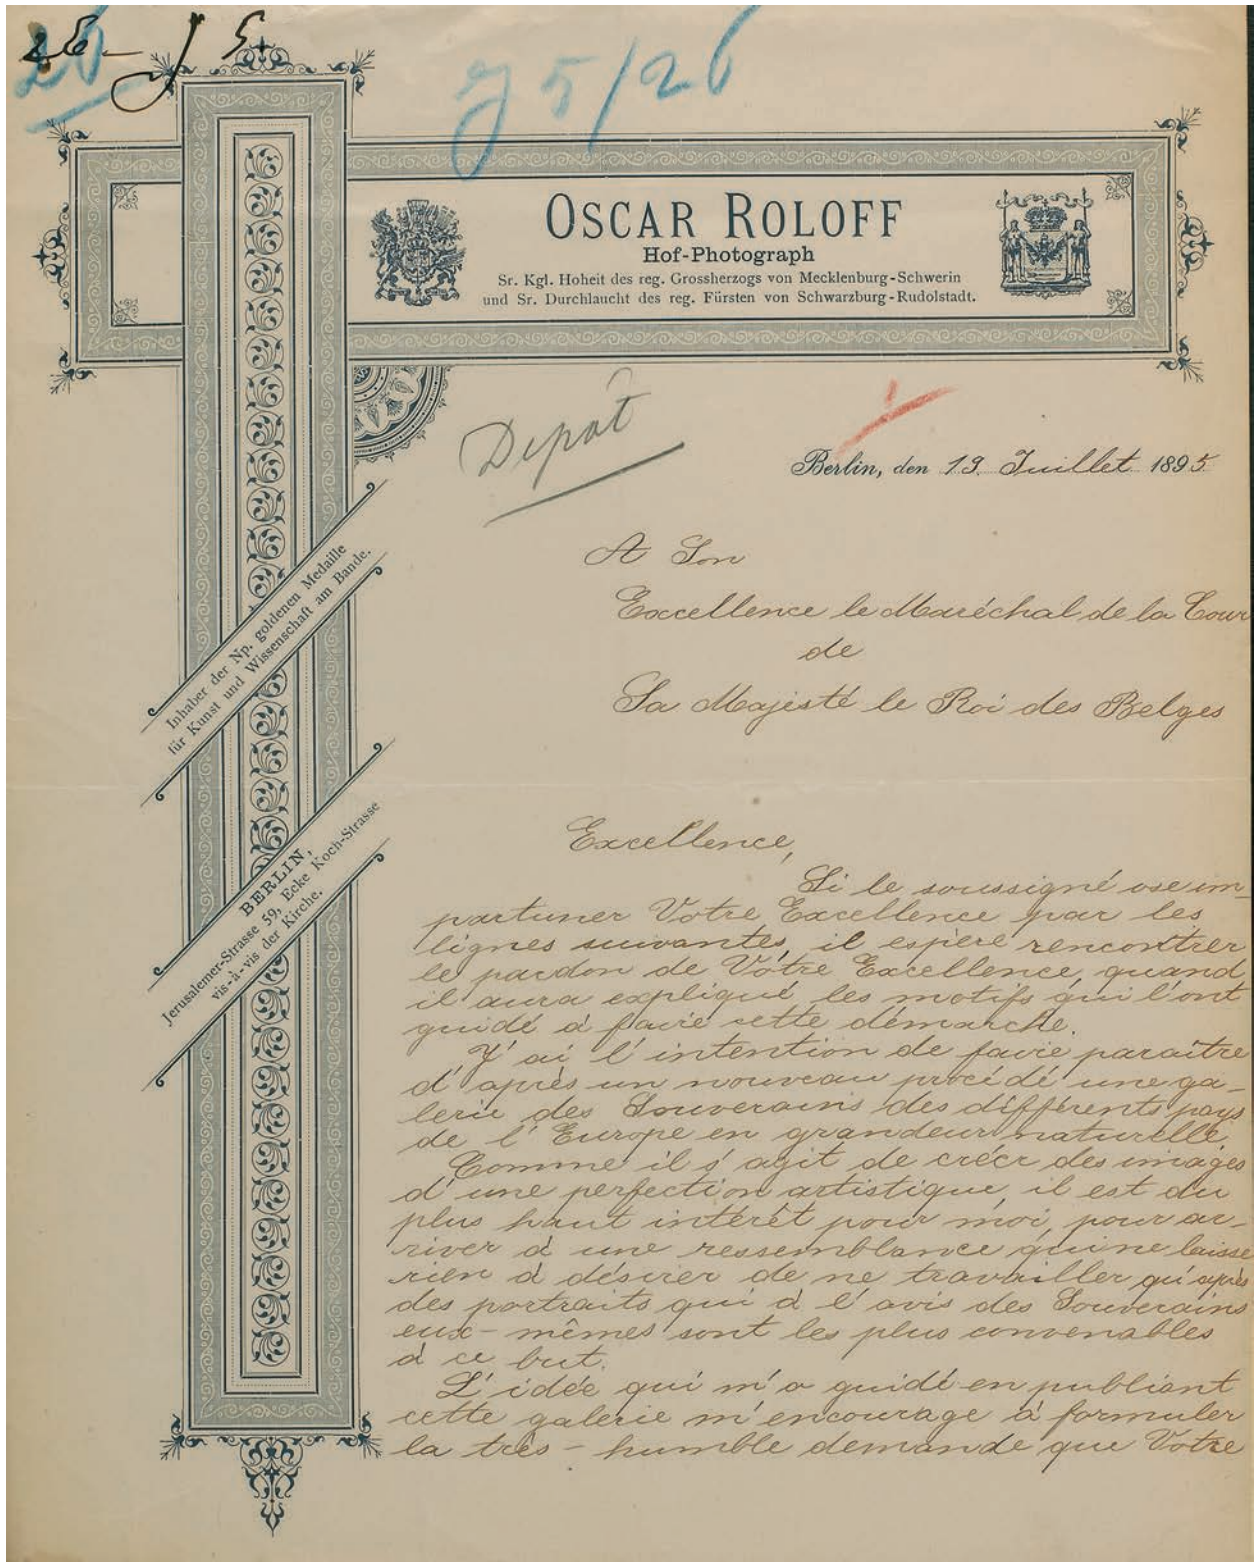 J 5/26
OSCAR ROLOFF
Hof-Photograph
Sr. Kgl. Hoheit des reg. Grossherzogs von Mecklenburg-Schwerin
und Sr. Durchlaucht des reg. Fürsten von Schwarzburg-Rudolstadt.
Depot
Berlin, den 19. Juillet 1895
A Son
Excellence le Maréchal de la Cour
de
Sa Majesté le Roi des Belges
Inhaber der Np. goldenen Medaille
für Kunst und Wissenschaft am Bande.
BERLIN,
Jerusalemer-Strasse 59, Ecke Koch-Strasse
vis-à-vis der Kirche.
Excellence,
Si le soussigné ose im-
partuner Votre Excellence par les
lignes suivantes, il espère rencontrer
le pardon de Votre Excellence, quand
il aura expliqué les motifs qui l'ont
guidé à faire cette démarche.
J'ai l'intention de faire paraître
d'après un nouveau procédé une ga-
lerie des Souverains des différents pays
de l'Europe en grandeur naturelle.
Comme il s'agit de créer des images
d'une perfection artistique, il est du
plus haut intérêt pour moi, pour ar-
river à une ressemblance qui ne laisse
rien à désirer de ne travailler qu'après
des portraits qui à l'avis des Souverains
eux-mêmes sont les plus convenables
à ce but.
L'idée qui m'a guidé en publiant
cette galerie m'encourage à formuler
la très-humble demande que Votre